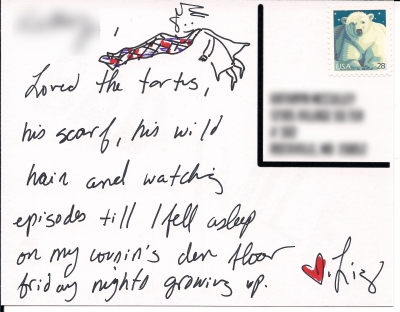 Loved the tardis,
his scarf, his wild
hair and watching
episodes till I fell asleep
on my cousin's den floor
friday nights growing up.
Liz
USA 28